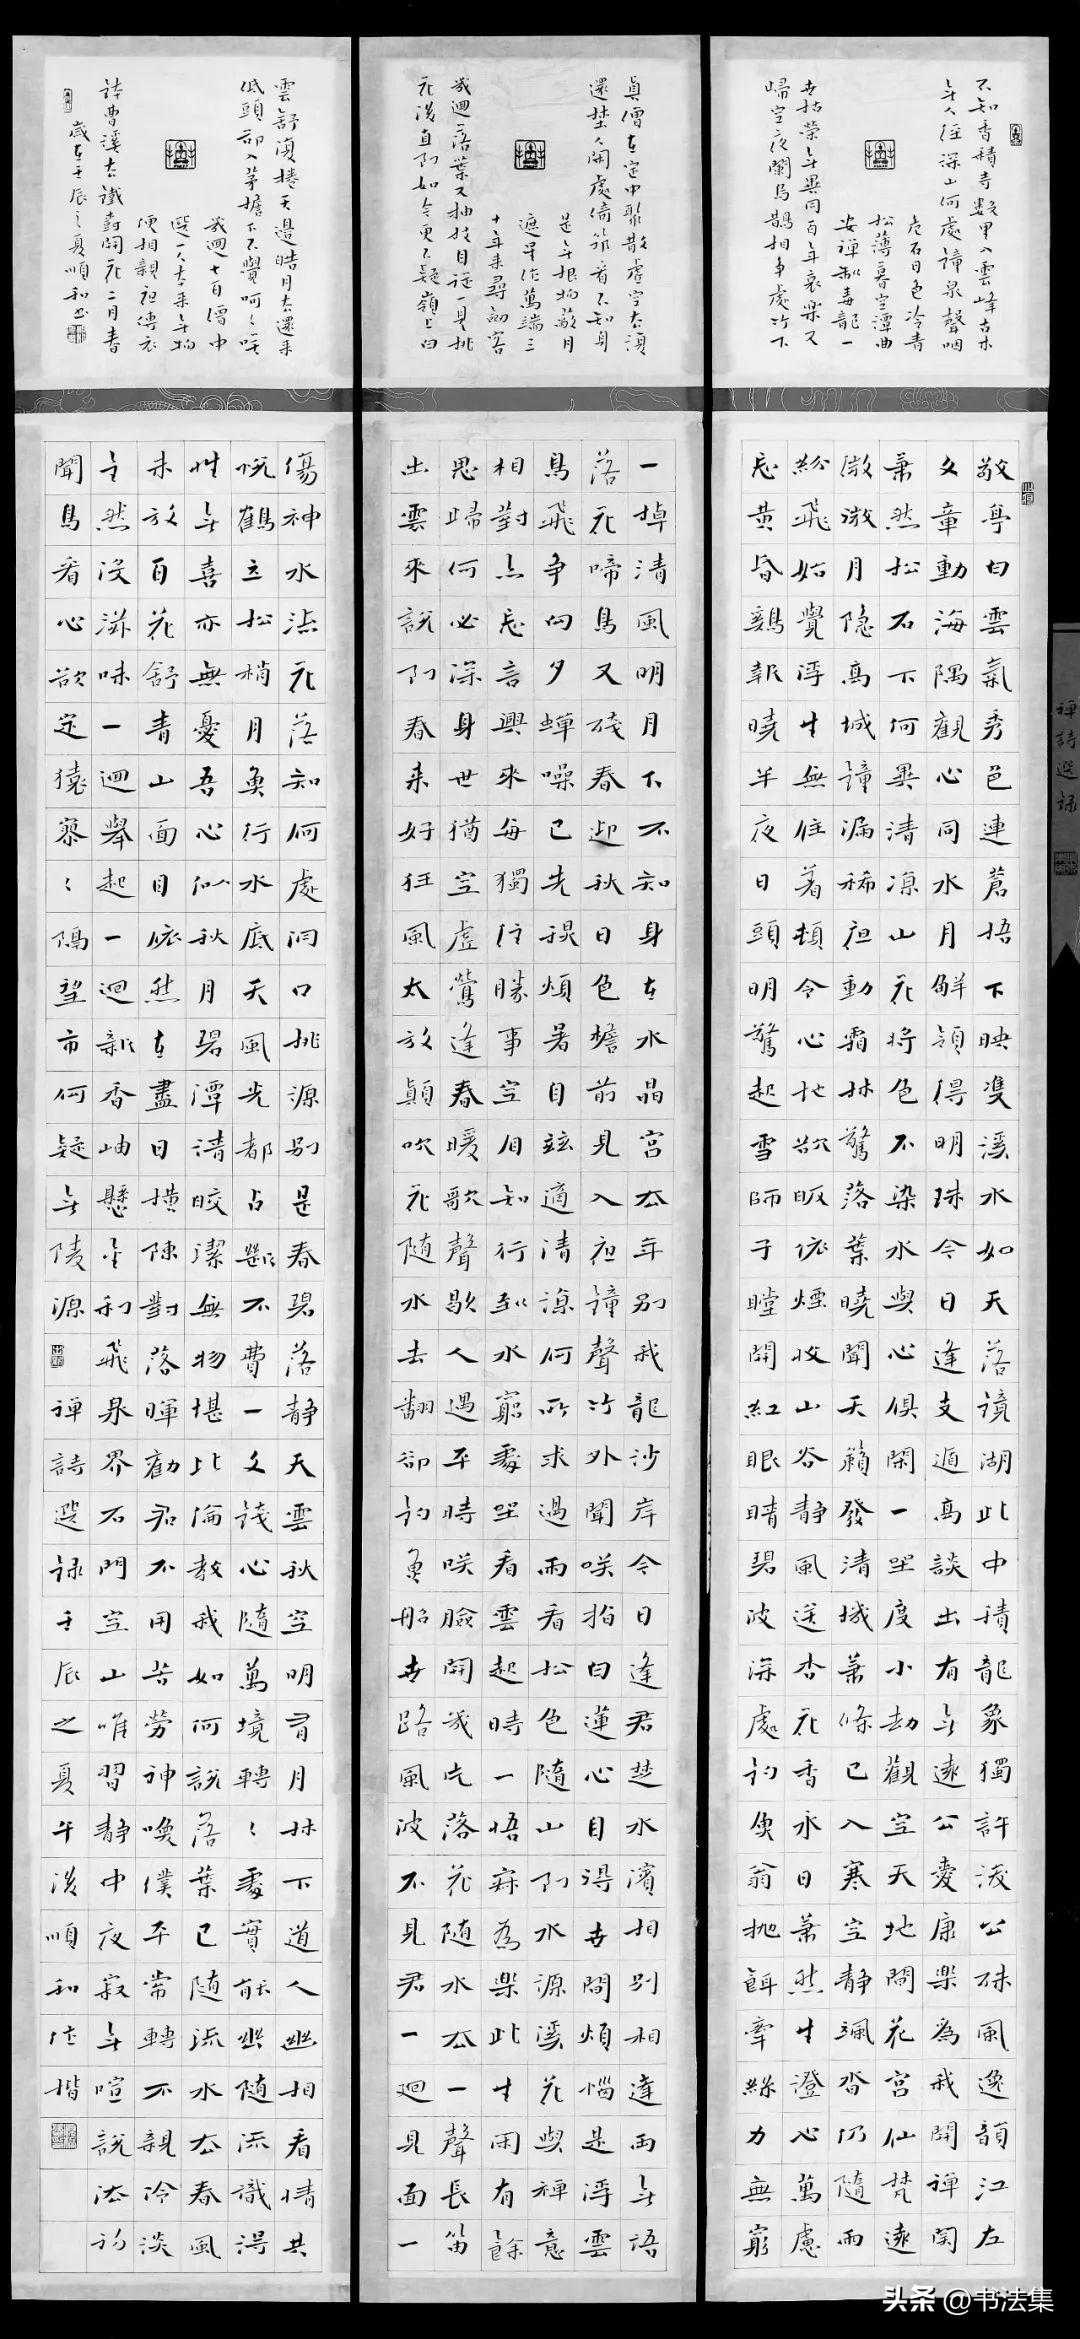 不知香積寺數里入雲峰古木
無人徑深山何處鐘泉聲咽
危石日色冷青
松薄暮空潭曲
安禪制毒龍一
世枯榮無異同百年哀樂又
歸空夜闌烏鵲相爭處竹下
敬亭白雲氣秀色連蒼梧下映雙溪水如天落鏡湖此中積龍象獨許濬公殊風逸韻江左
文章動海隅觀心同水月解領得明珠今日逢支遁高談出有無遠公愛康樂為我開禪關
蕭然松石下何異清涼山花將色不染水與心俱閑一坐度小劫觀空天地間花宮仙梵遠
微微月隱高城鐘漏稀夜動霜林驚落葉曉聞天籟發清機蕭條已入寒空靜颯沓仍隨雨
紛飛始覺浮生無住著頓令心地欲皈依煙收山谷靜風送杏花香永日蕭然坐澄心萬慮
忘黃昏鷄報曉半夜日頭明驚起雪師子瞠開紅眼睛碧波深處釣魚翁拋餌牽絲力無窮
真僧在定中聚散虛空去復
還野人閒處倚筇看不知身
是無根物蔽月
遮星作萬端三
十年來尋劍客
幾迴落葉又抽枝自從一見桃
花後直到如今更不疑嶺上白
一掉清風明月下不知身在水晶宮去年別我龍沙岸今日逢君楚水濱相別相逢兩無語
落花啼鳥又殘春迎秋日色檐前見入夜鐘聲竹外聞咲指白蓮心自得世間煩惱是浮雲
鳥飛爭向夕蟬噪已先秋煩暑自茲適清涼何所求過雨看松色隨山到水源溪花與禪意
相對亦忘言興來每獨往勝事空自知行到水窮處坐看雲起時一悟寂為樂此生閑有餘
思歸何必深身世猶空虛鶯逢春暖歌聲歇人遇平時咲臉開幾片落花隨水去一聲長笛
出雲來說到春來好狂風太放顛吹花隨水去翻卻釣魚船世路風波不見君一迴見面一
雲舒復捲天邊皓月去還來
低頭卻入茅檐下不覺呵呵咲
幾迴七百僧中
選一人本來無物
便相親祖傳衣
鉢曹溪去鐵樹開花二月春
歲在壬辰之夏順和書
傷神水流花落知何處洞口桃源別是春碧落靜无雲秋空明有月林下道人幽相看情共
悅鶴立松梢月魚行水底天風光都占斷不費一文錢心隨萬境轉轉處實能幽隨流識得
性無喜亦無憂吾心似秋月碧潭清皎潔無物堪比倫教我如何說落葉已隨流水去春風
未放百花舒青山面目依然在盡日橫陳對落暉勸君不用苦勞神喚僕平常轉不親冷淡
全然沒滋味一迴舉起一迴新香岫懸金利飛泉界石門空山唯習靜中夜寂無喧說法初
聞鳥看心欲定猿寥寥隔望市何疑無陵源 禪詩選録壬辰之夏午後順和作楷
禪詩選録
头条 @书法集